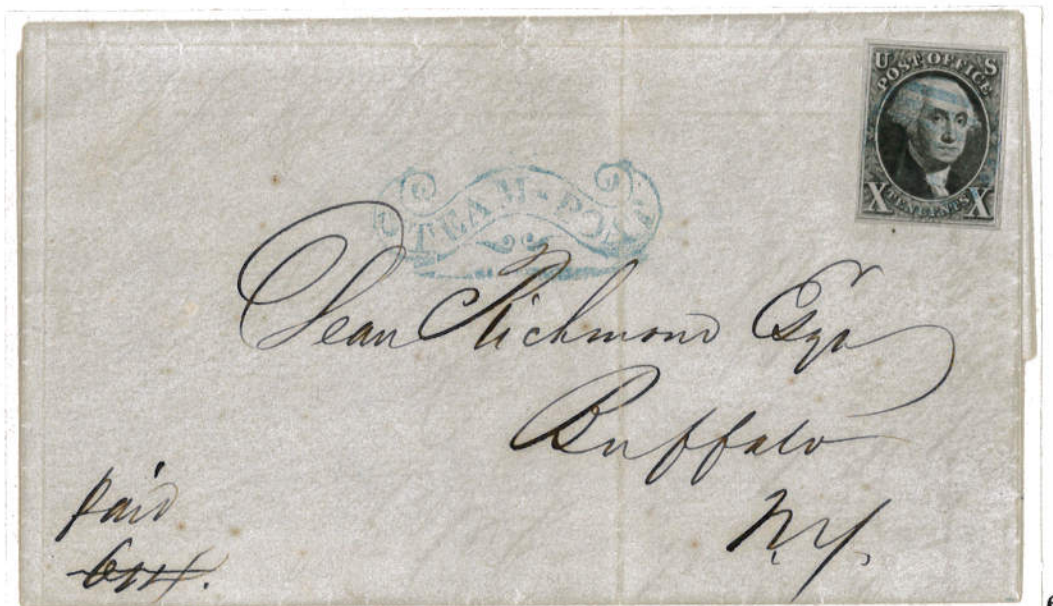 U S
POST OFFICE
X TEN CENTS X
STEAM-BOAT
Dean Richmond Esqr
Buffalo
N.Y.
paid